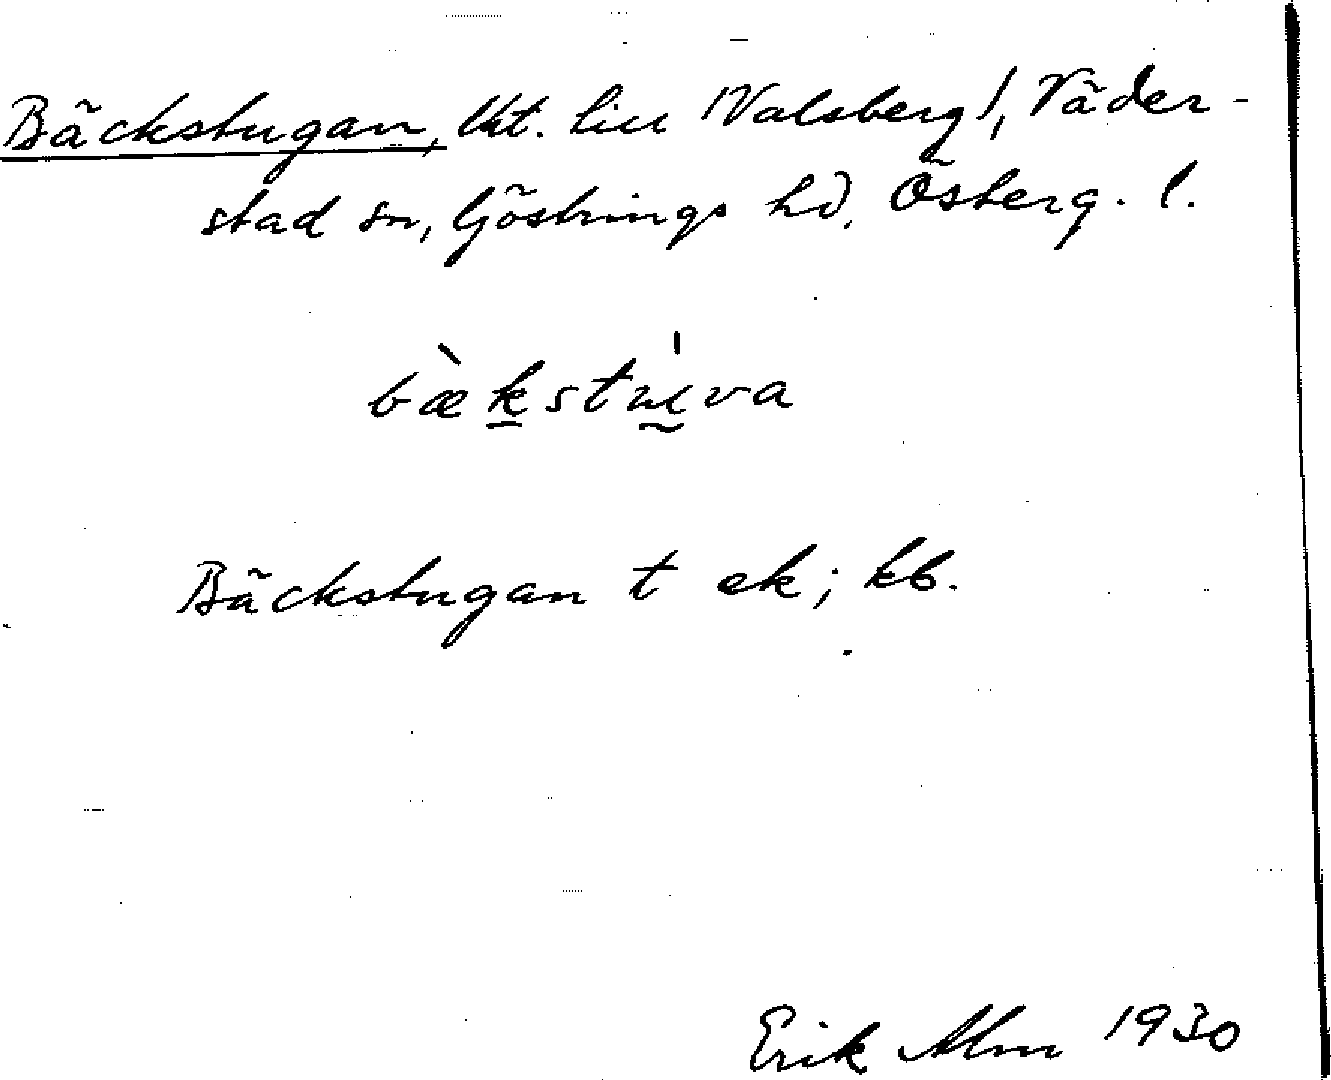 Bäckstugan, lht. liu /Valsberg/, Väder-
stad sn, Göstrings hd, Österg. l.
bækstuva
Bäckstugan t ek; kb.
Erik Alm 1930